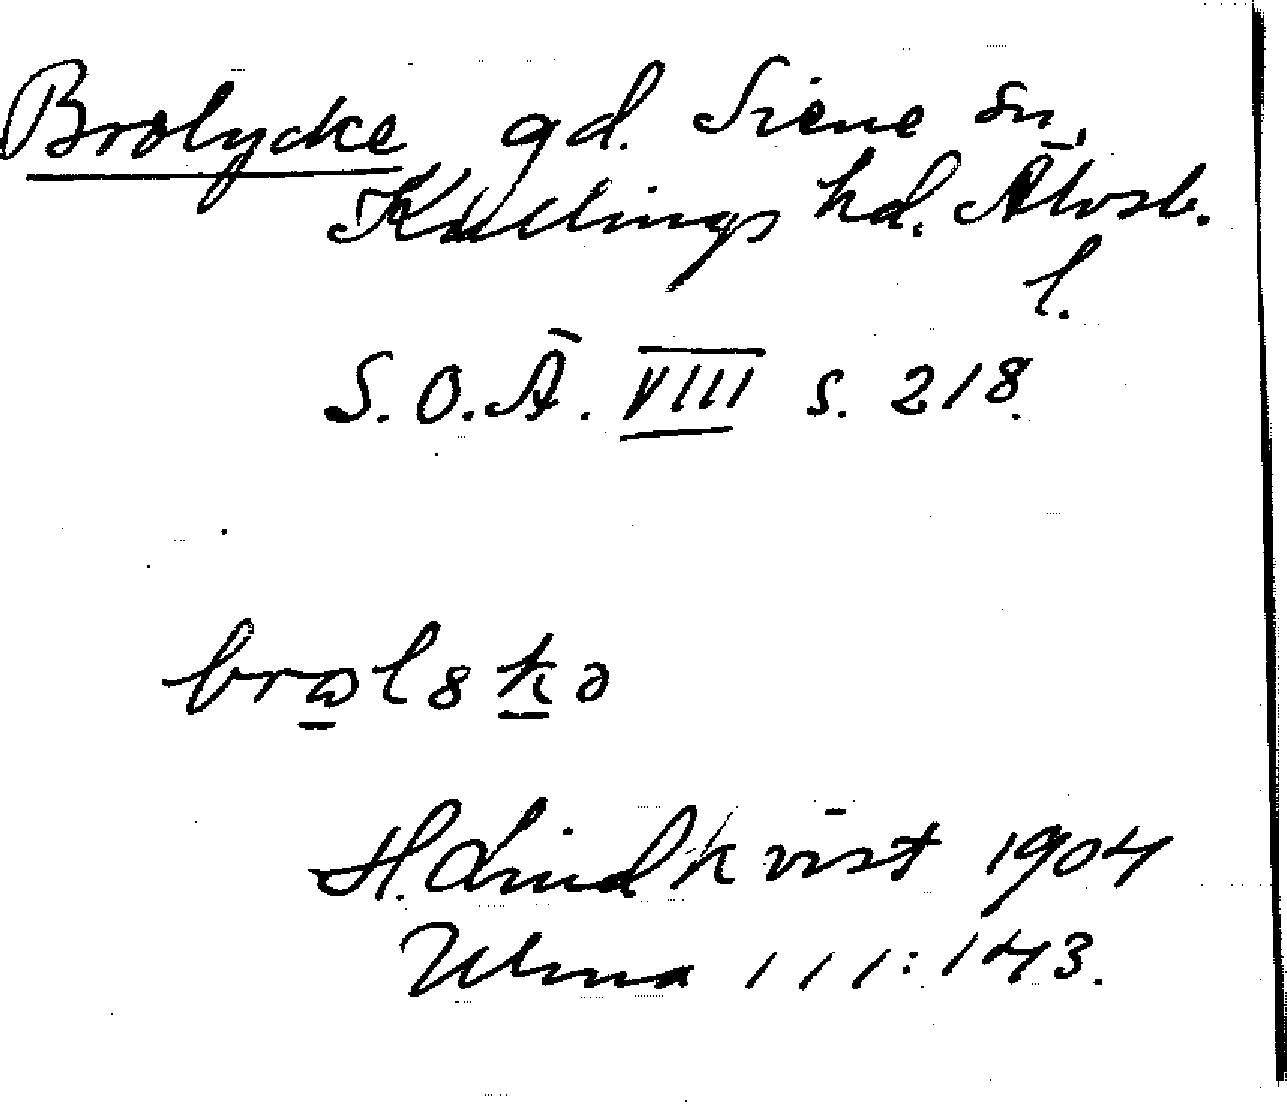 Brolycke gd. Siene sn,
Kullings hd. Älvsb.
l.
S.O.Ä. VIII s. 218.
H. Lindkvist 1904
Ulma 111:143.